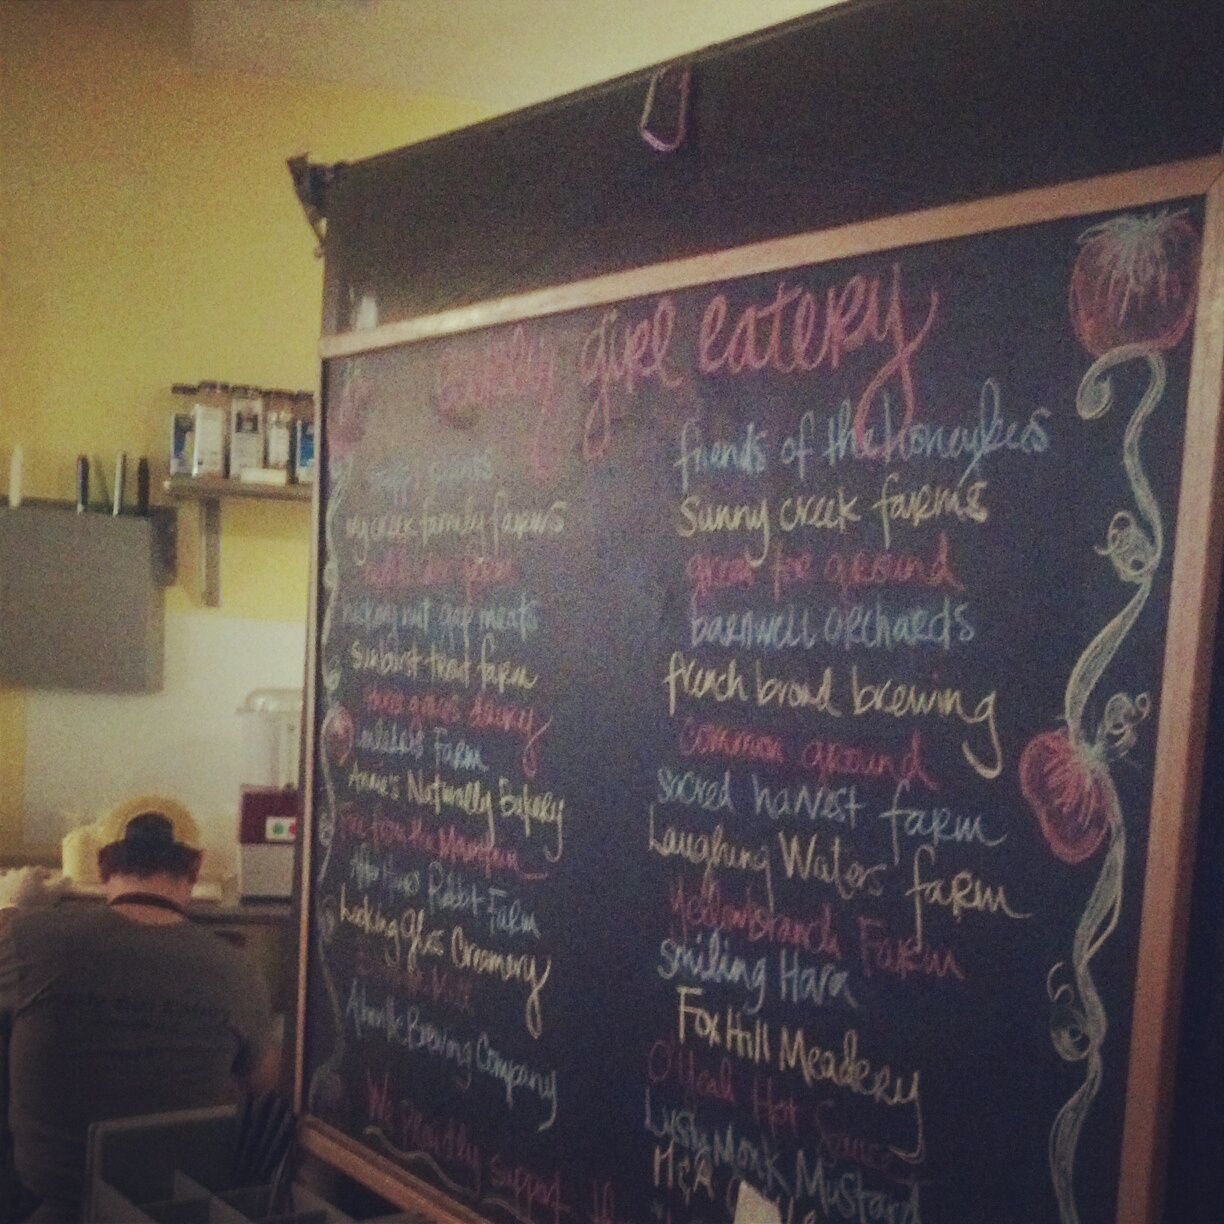 early girl eatery
creek family farms
hickory nut gap meats
sunburst trout farm
three graces dairy
Farm
Annie's Naturally Bakery
Mountain
Rabbit Farm
Looking Glass Creamery
Asheville Brewing Company
We Proudly support
friends of the honeybees
sunny creek farms
ground
barnwell orchards
french broad brewing
common ground
sacred harvest farm
Laughing Waters farm
Yellowbranch Farm
smiling Hara
Fox Hill Meadery
O'Yeah Hot Sauce
Lusty Monk Mustard